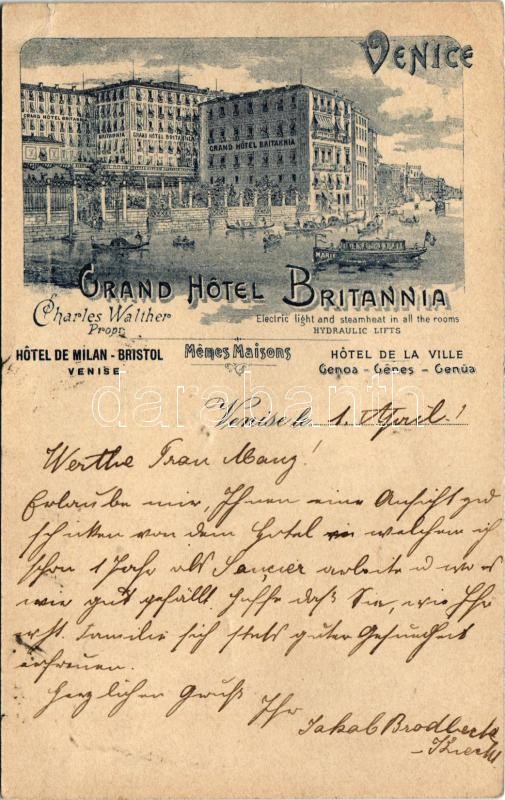 VENICE
GRAND HÔTEL BRITANNIA
GRAND HÔTEL BRITANNIA
MARIE
GRAND HÔTEL BRITANNIA
Charles Walther
Propr.
Electric light and steamheat in all the rooms
HYDRAULIC LIFTS
HÔTEL DE MILAN - BRISTOL
VENISE
Mêmes Maisons
HÔTEL DE LA VILLE
Genoa - Gênes - Genua
darabanth
Venise le 1. April!
Werthe Frau Manz!
Erlaube mir, Ihnen eine Ansicht zu
schicken von dem Hotel in welchem ich
schon 1 Jahr als Saucier arbeite u wo es
mir gut gefällt hoffe daß Sie, wie Ihre
Familie sich stets guter Gesundheit
erfreuen.
Herzlichen Gruß
Ihr
Jakob Brodbeck